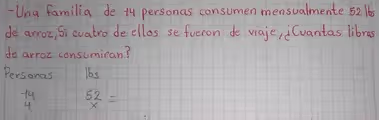 -Una familia de 14 personas consumen mensualmente 52 lbs
de arroz, Si cuatro de ellos se fueron de viaje, ¿Cuantas libras
de arroz consumiran?
Personas lbs
14 52 =
4 x